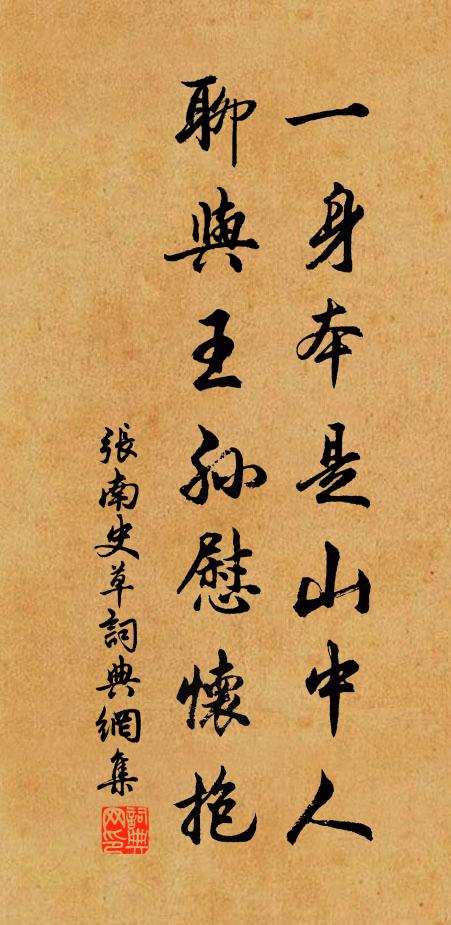 一身本是山中人
聊與王孫慰懷抱
張南史草詞典網集
詞典網印